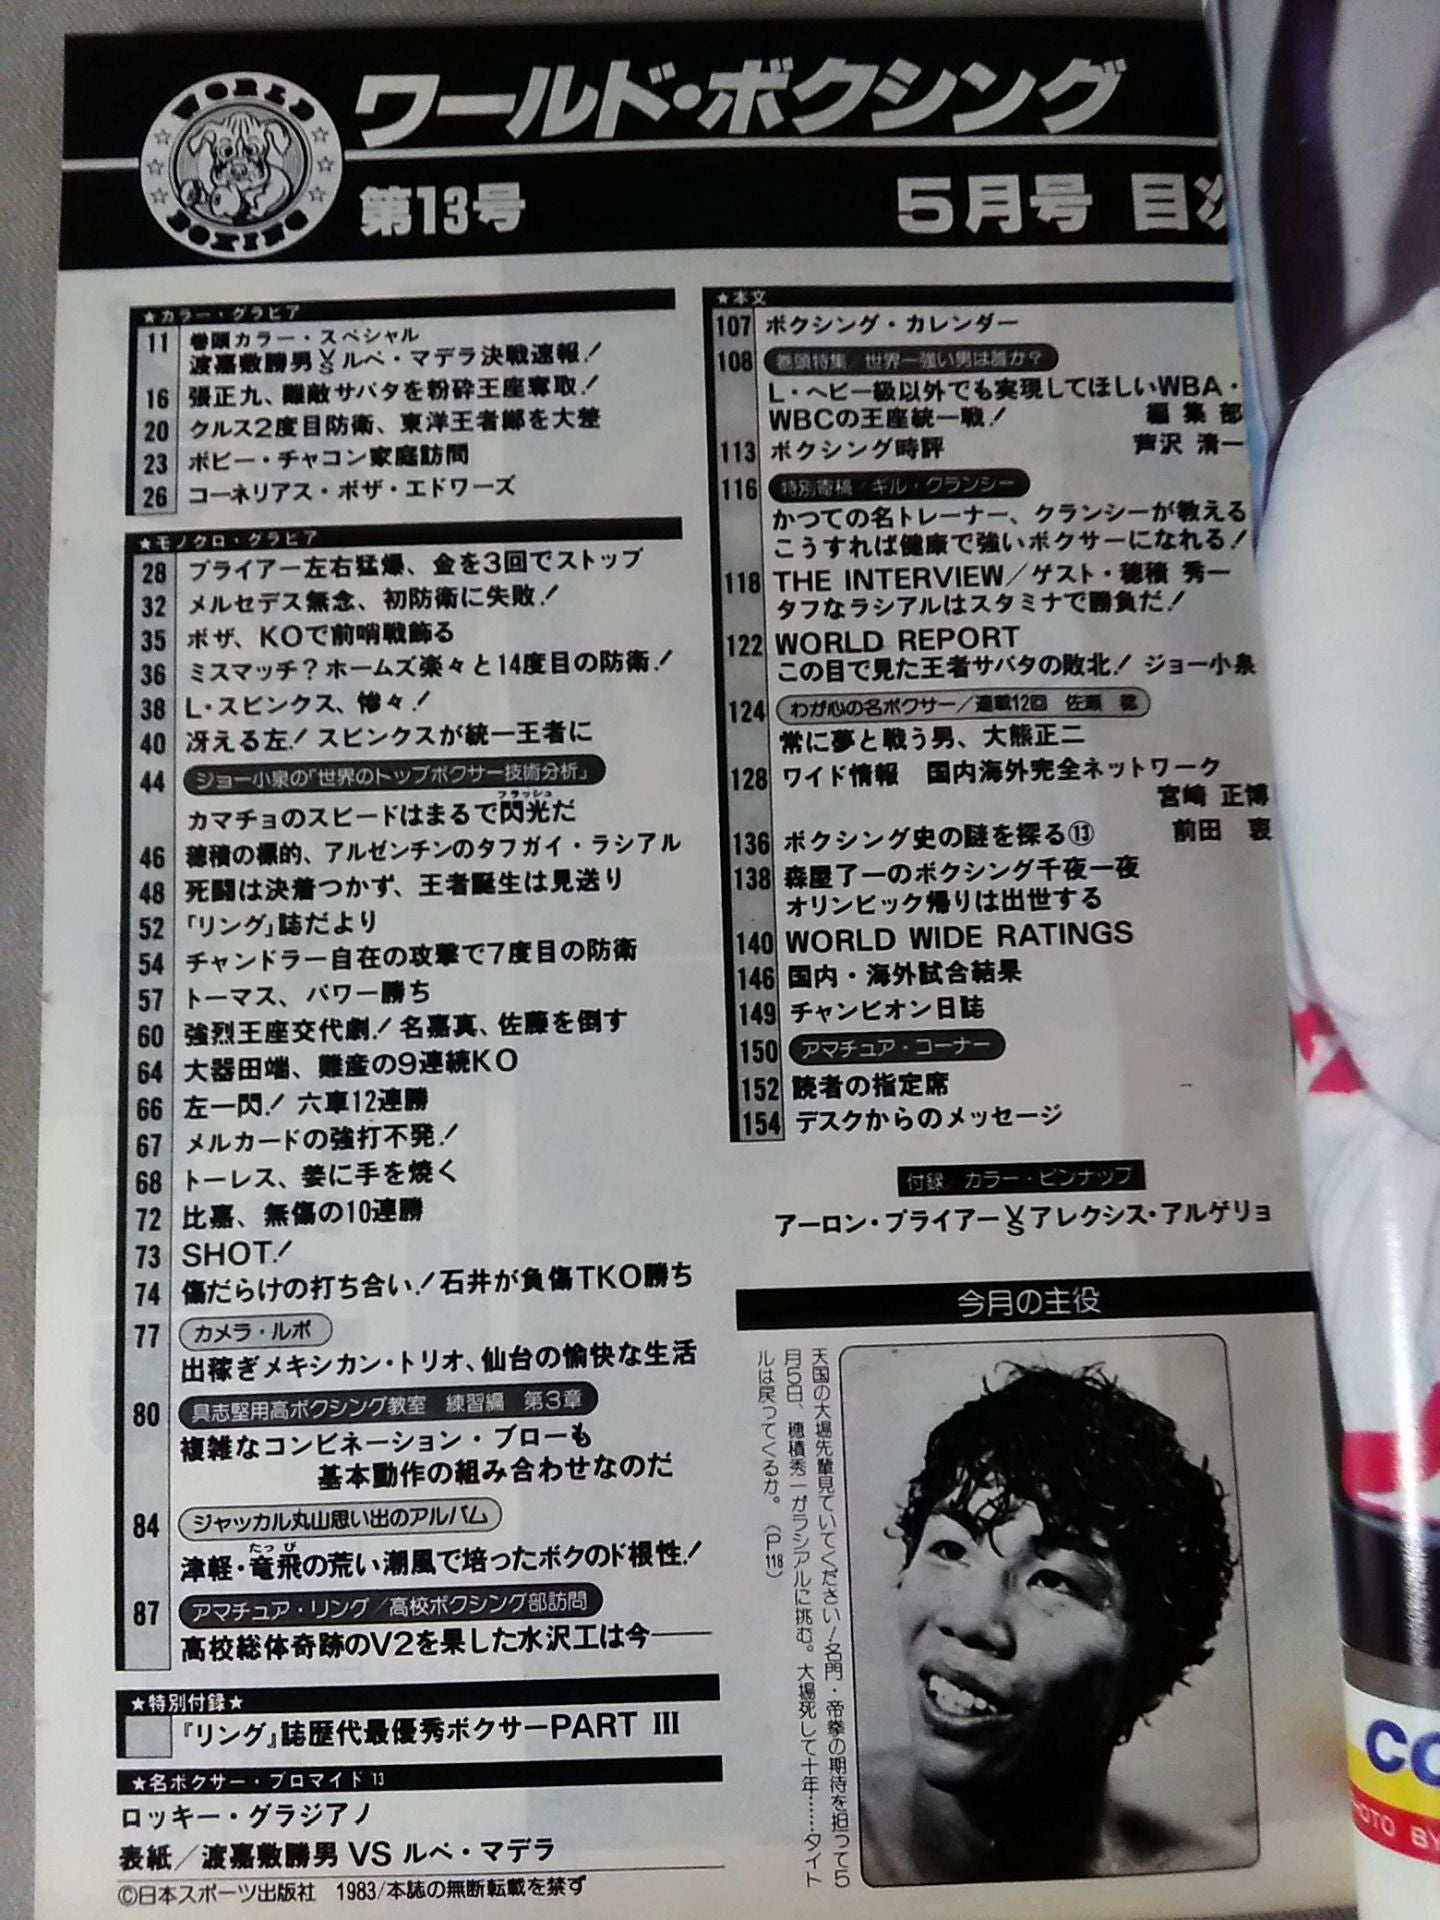 WORLD BOXING
ワールド・ボクシング
第13号
5月号 目次
★カラー・グラビア
11 巻頭カラー・スペシャル
渡嘉敷勝男VSルペ・マデラ決戦速報!
16 張正九、難敵サパタを粉砕王座奪取!
20 クルス2度目防衛、東洋王者鄭を大差
23 ボビー・チャコン家庭訪問
26 コーネリアス・ボザ・エドワーズ
★モノクロ・グラビア
28 プライアー左右猛爆、金を3回でストップ
32 メルセデス無念、初防衛に失敗!
35 ボザ、KOで前哨戦飾る
36 ミスマッチ?ホームズ楽々と14度目の防衛!
38 L・スピンクス、惨々!
40 冴える左!スピンクスが統一王者に
44 ジョー小泉の「世界のトップボクサー技術分析」
カマチョのスピードはまるで閃光だ
フラッシュ
46 穂積の標的、アルゼンチンのタフガイ・ラシアル
48 死闘は決着つかず、王者誕生は見送り
52 「リング」誌だより
54 チャンドラー自在の攻撃で7度目の防衛
57 トーマス、パワー勝ち
60 強烈王座交代劇!名嘉真、佐藤を倒す
64 大器田端、難産の9連続KO
66 左一閃!六車12連勝
67 メルカードの強打不発!
68 トーレス、姜に手を焼く
72 比嘉、無傷の10連勝
73 SHOT!
74 傷だらけの打ち合い!石井が負傷TKO勝ち
77 カメラ・ルポ
出稼ぎメキシカン・トリオ、仙台の愉快な生活
80 具志堅用高ボクシング教室 練習編 第3章
複雑なコンビネーション・ブローも
基本動作の組み合わせなのだ
84 ジャッカル丸山思い出のアルバム
たっぴ
津軽・竜飛の荒い潮風で培ったボクのド根性!
87 アマチュア・リング/高校ボクシング部訪問
高校総体奇跡のV2を果した水沢工は今──
★特別付録★
『リング』誌歴代最優秀ボクサーPART III
★名ボクサー・ブロマイド13
ロッキー・グラジアノ
表紙/渡嘉敷勝男VSルペ・マデラ
©日本スポーツ出版社 1983/本誌の無断転載を禁ず
★本文
107 ボクシング・カレンダー
108 巻頭特集/世界一強い男は誰か?
L・ヘビー級以外でも実現してほしいWBA・
WBCの王座統一戦! 編集部
113 ボクシング時評 芦沢清一
116 特別寄稿/ギル・クランシー
かつての名トレーナー、クランシーが教える
こうすれば健康で強いボクサーになれる!
118 THE INTERVIEW/ゲスト・穂積 秀一
タフなラシアルはスタミナで勝負だ!
122 WORLD REPORT
この目で見た王者サパタの敗北! ジョー小泉
124 わが心の名ボクサー/連載12回 佐瀬 稔
常に夢と戦う男、大熊正二
128 ワイド情報 国内海外完全ネットワーク
宮崎 正博
136 ボクシング史の謎を探る⑬ 前田 衷
138 森屋了一のボクシング千夜一夜
オリンピック帰りは出世する
140 WORLD WIDE RATINGS
146 国内・海外試合結果
149 チャンピオン日誌
150 アマチュア・コーナー
152 読者の指定席
154 デスクからのメッセージ
付録/カラー・ピンナップ
アーロン・プライアーVSアレクシス・アルゲリョ
今月の主役
天国の大場先輩見ていてください!名門・帝拳の期待を担って5
月5日、穂積秀一がラシアルに挑む。大場死して十年……タイト
ルは戻ってくるか。(P118)
CO
PHOTO BY